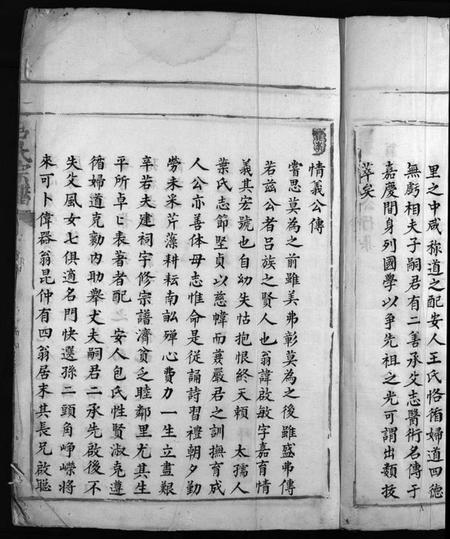 里之中咸称道之配安人王氏恪循婦道四德
無虧相夫子嗣君有二善承父志醫術名傳于
嘉慶間身列國學以爭先祖之光可謂出類拔
萃矣
情義公傳
嘗思莫為之前雖美弗彰莫為之後雖盛弗傳
若茲公者吕族之賢人也翁諱啟敏字嘉育情
義其宏號也自幼失怙抱恨終天賴 太孺人
葉氏志節堅貞以慈幃而兼嚴君之訓撫育成
人公亦善体母志惟命是從誦詩習禮朝夕勤
勞未采芹藻耕耘南畝殫心費力一生立晝艱
辛若夫建祠宇修宗譜濟貧乏睦鄰里尤其生
平所卓卓表著者配 安人包氏性賢淑克遵
循婦道克勤内助舉丈夫嗣君二承先啟後不
失父風女七俱適名門快選孫二頭角崢嶸將
來可卜偉器翁昆仲有四翁居末其長兄啟聰